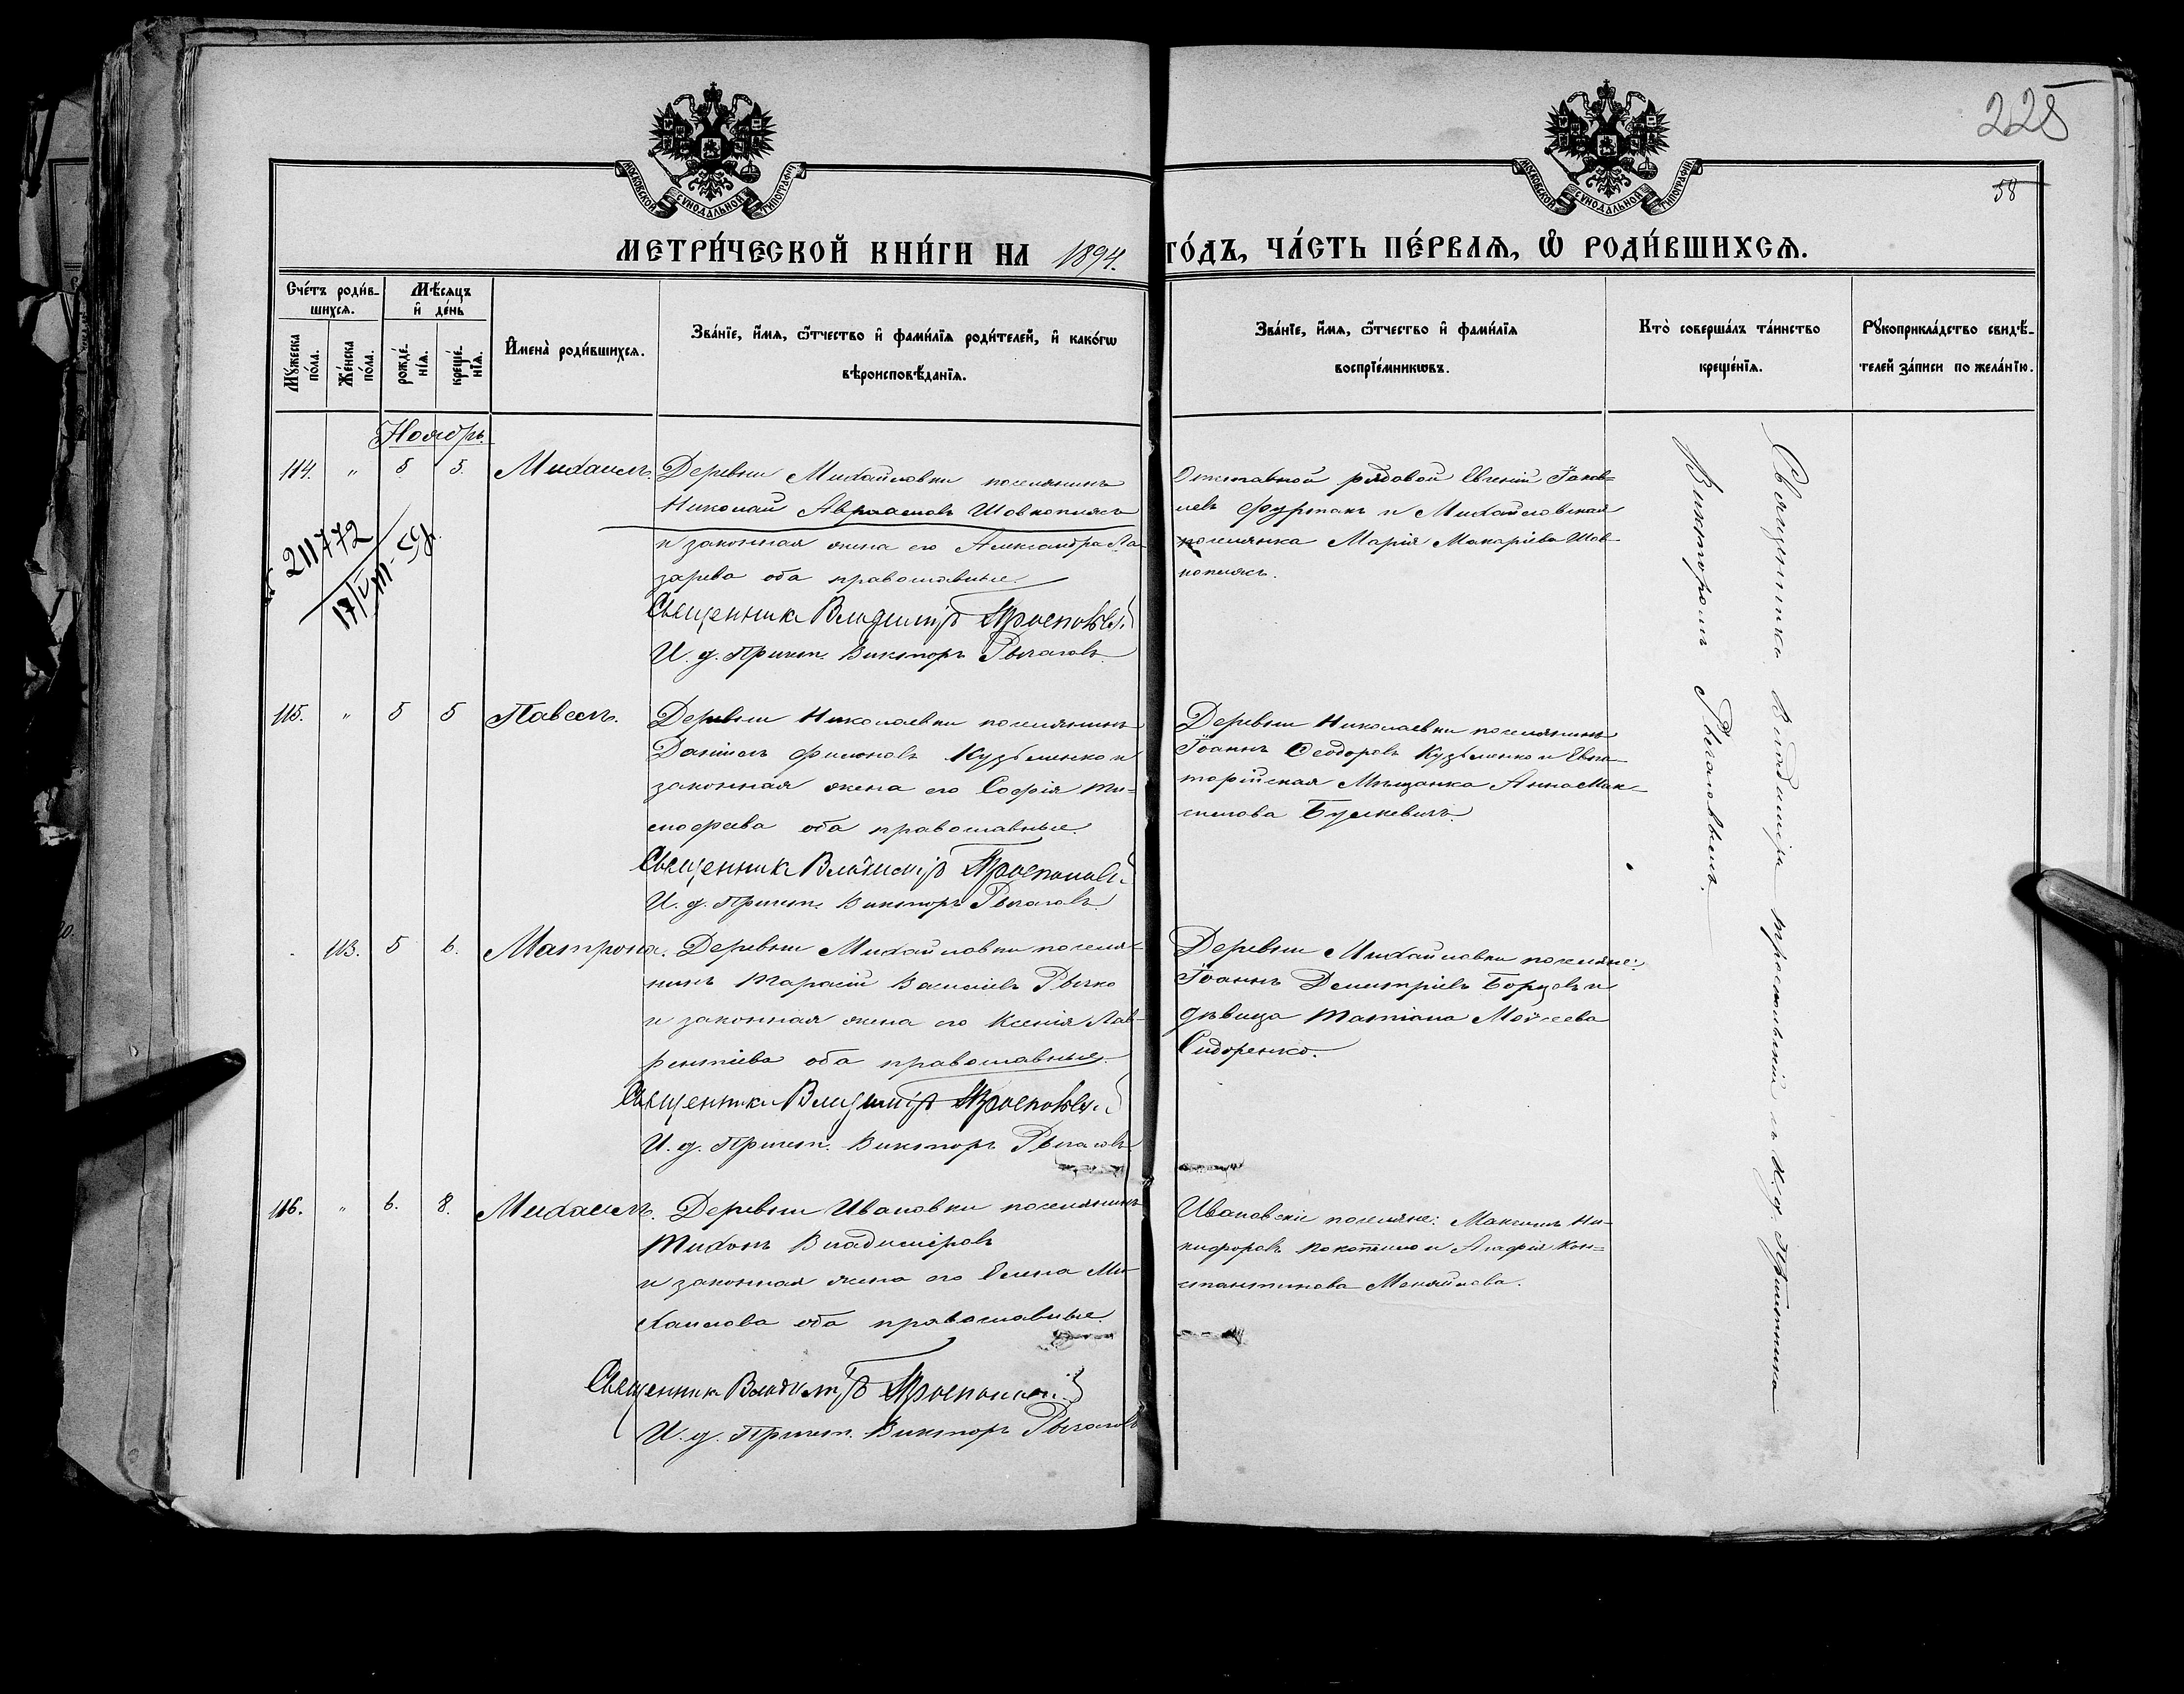 225
58
МОСКОВСКОЙ СѴНОДАЛЬНОЙ ТИПОГРАФІИ
МОСКОВСКОЙ СѴНОДАЛЬНОЙ ТИПОГРАФІИ
МЕТРИ́ЧЕСКОЙ КНИ́ГИ НА 1894. ГО́ДЪ, ЧА́СТЬ ПЕ́РВАѦ, Ѡ РОДИ́ВШИХСѦ.
Сче́тъ роди́в-
шихсѧ.
Мꙋ́жеска
по́ла.
Же́нска
по́ла.
Мѣ́сѧцъ
и҆ де́нь
рожде́-
нїѧ.
креще́-
нїѧ.
И҆мена̀ роди́вшихсѧ.
Зва́нїе, и҆́мѧ, ѻ҆́тчество и҆ фами́лїѧ роди́телей, и҆ како́гѡ
вѣроисповѣ́данїѧ.
Зва́нїе, и҆́мѧ, ѻ҆́тчество и҆ фами́лїѧ
воспрїе́мникѡвъ.
Кто̀ соверша́лъ та́инство
креще́нїѧ.
Рꙋкоприкла́дство свидѣ́-
телей за́писи по жела́нїю.
Ноябрь.
114. " 5 5. Михаилъ.
Деревни Михайловки поселянинъ
Николай Авраамовъ Шовкоплясъ
и законная жена его Александра Ла-
зарева оба православные.
Священникъ Владиміръ
И. д. Причетн. Викторъ Рычаговъ.
Отставной рядовой Евгеній Іаков=
левъ Фурманъ и Михайловская
поселянка Марія Макаріева Шов-
коплясъ.
211772
17/VIII-59г.
115. " 5 5 Павелъ.
Деревни Николаевки поселянинъ
Даніилъ Филоновъ Кузьменко и
законная жена его Софія Ти-
мофеева оба православные.
Священникъ Владиміръ
И. д. Причетн. Викторъ Рычаговъ.
Деревни Николаевки поселянинъ
Іоаннъ Ѳеодоровъ Кузьменко и Евпа-
торійская Мѣщанка Анна Мак-
симова
113. 5 6. Матрона.
Деревни Михайловки поселя-
нинъ Тарасій Василіевъ Рычко
и законная жена его Ксенія Лав-
рентіева оба православные.
Священникъ Владиміръ
И. д. Причетн. Викторъ Рычаговъ
Деревни Михайловки поселяне:
Іоаннъ Димитріевъ Борцовъ и
дѣвица Татіана Моѵсеева
Сидоренко.
116. " 6. 8. Михаилъ.
Деревни Ивановки поселянинъ
Тихонъ Владиміровъ
и законная жена его Елена Ми-
хаилова оба православные.
Священникъ Владиміръ
И. д. Причетн. Викторъ Рычаговъ
Ивановскіе поселяне: Максимъ Ни-
кифоровъ и Агафія Кон=
стантинова Меняйлова.
Священникъ Владиміръ съ И. д. Причетника
Викторомъ Рычаговымъ.